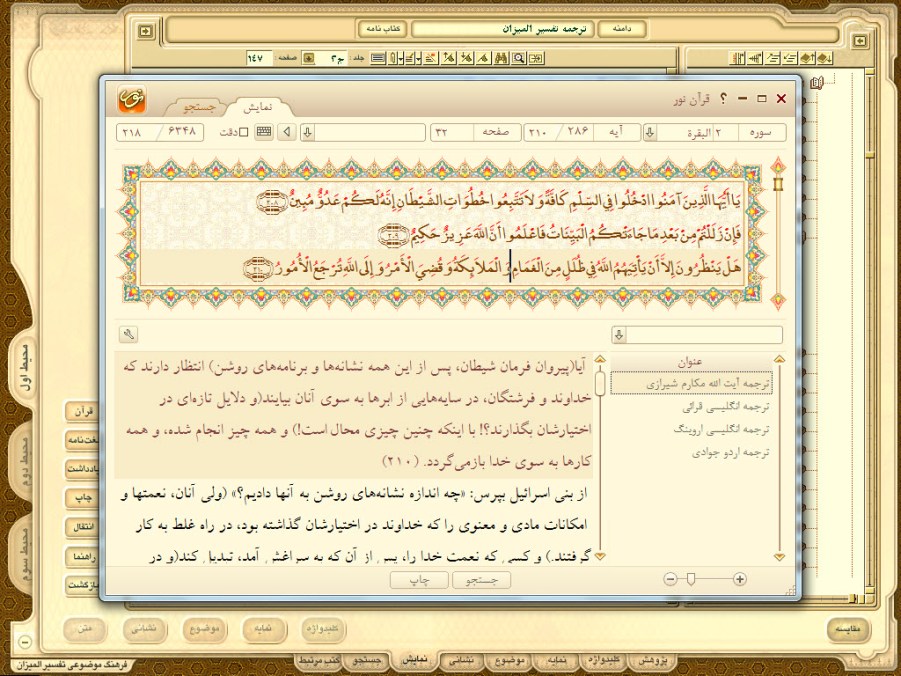 دامنه
ترجمه تفسیر المیزان
کتاب نامه
جلد: ج۲ صفحه ۱۴۷
قرآن نور
نمایش
جستجو
سوره ۲ البقرة
آیه ۲۸۶ / ۲۱۰
صفحه ۳۲
دقت
۶۳۴۸ / ۲۱۸
یَا أَیُّهَا الَّذِینَ آمَنُوا ادْخُلُوا فِی السِّلْمِ کَافَّةً وَ لاَ تَتَّبِعُوا خُطُوَاتِ الشَّیْطَانِ إِنَّهُ لَکُمْ عَدُوٌّ مُبِینٌ ﴿۲۰۸﴾
فَإِنْ زَلَلْتُمْ مِنْ بَعْدِ مَا جَاءَتْکُمُ الْبَیِّنَاتُ فَاعْلَمُوا أَنَّ اللَّهَ عَزِیزٌ حَکِیمٌ ﴿۲۰۹﴾
هَلْ یَنْظُرُونَ إِلاَّ أَنْ یَأْتِیَهُمُ اللَّهُ فِی ظُلَلٍ مِنَ الْغَمَامِ وَ الْمَلاَئِکَةُ وَ قُضِیَ الْأَمْرُ وَ إِلَی اللَّهِ تُرْجَعُ الْأُمُورُ ﴿۲۱۰﴾
عنوان
ترجمه آیت الله مکارم شیرازی
ترجمه انگلیسی قرائی
ترجمه انگلیسی اروینگ
ترجمه اردو جوادی
آیا(پیروان فرمان شیطان، پس از این همه نشانه‌ها و برنامه‌های روشن) انتظار دارند که
خداوند و فرشتگان، در سایه‌هایی از ابرها به سوی آنان بیایند(و دلایل تازه‌ای در
اختیارشان بگذارند؟! با اینکه چنین چیزی محال است!) و همه چیز انجام شده، و همه
کارها به سوی خدا بازمی‌گردد. (۲۱۰)
از بنی اسرائیل بپرس: «چه اندازه نشانه‌های روشن به آنها دادیم؟» (ولی آنان، نعمتها و
امکانات مادی و معنوی را که خداوند در اختیارشان گذاشته بود، در راه غلط به کار
گرفتند.) و کسی که نعمت خدا را، پس از آن که به سراغش آمد، تبدیل کند(و در
جستجو
چاپ
محیط اول
محیط دوم
محیط سوم
قرآن
لغت‌نامه
یادداشت
چاپ
انتقال
راهنما
بازگشت
مقایسه
کلیدواژه
نمایه
موضوع
نشانی
متن
پژوهش
کلیدواژه
نمایه
موضوع
نشانی
نمایش
جستجو
کتب مرتبط
فرهنگ موضوعی تفسیر المیزان